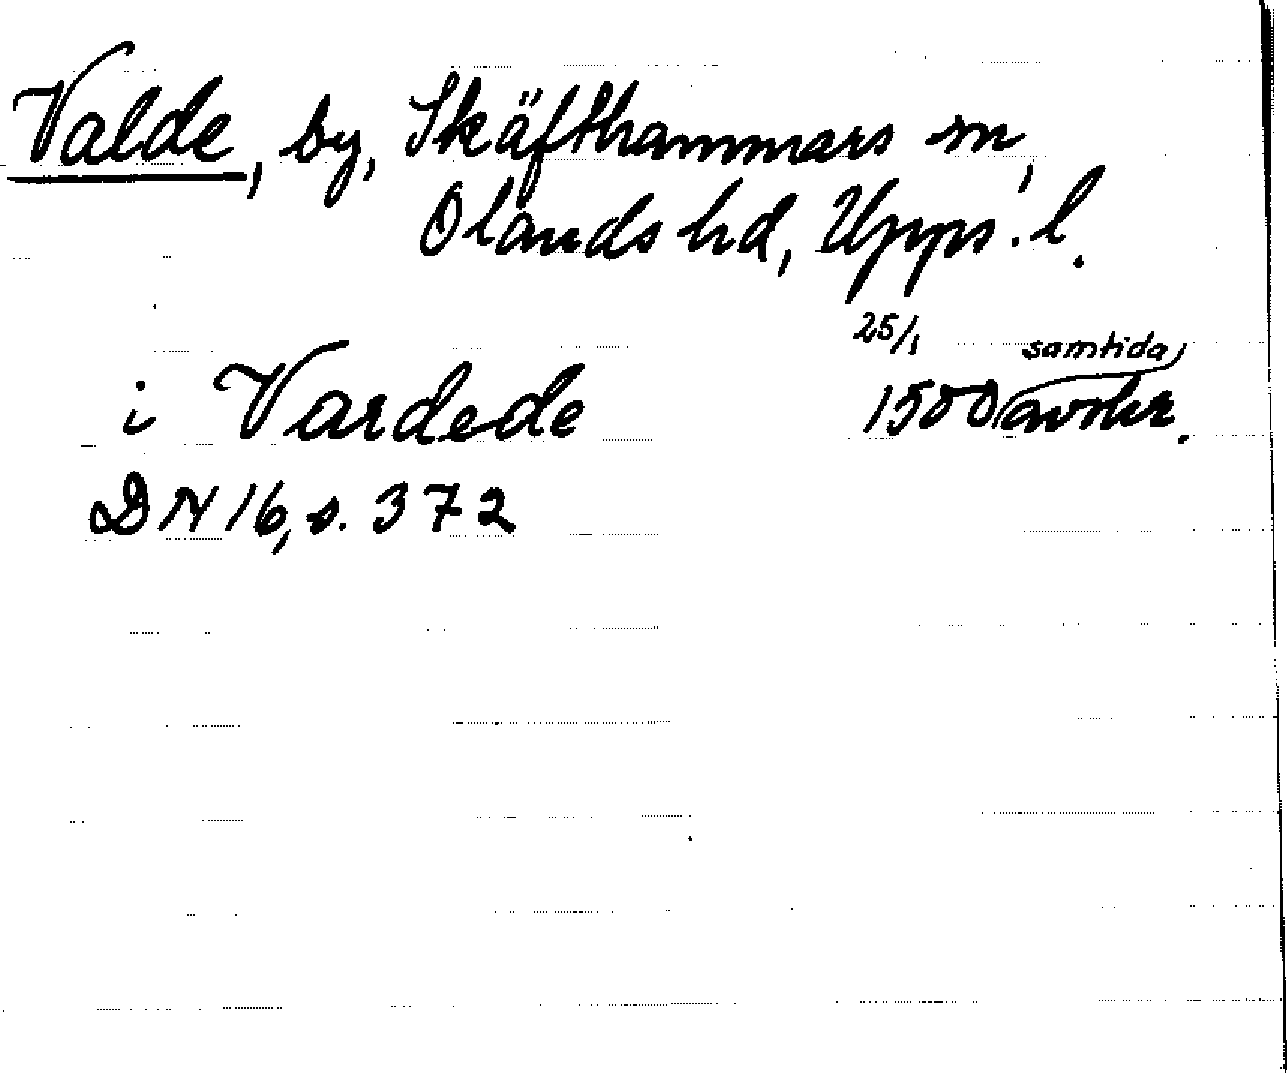 Valde, by, Skäfthammars sn,
Olands hd, Upps. l.
25/1
i Vardede 1500 samtida avskr.
DN 16, s. 372